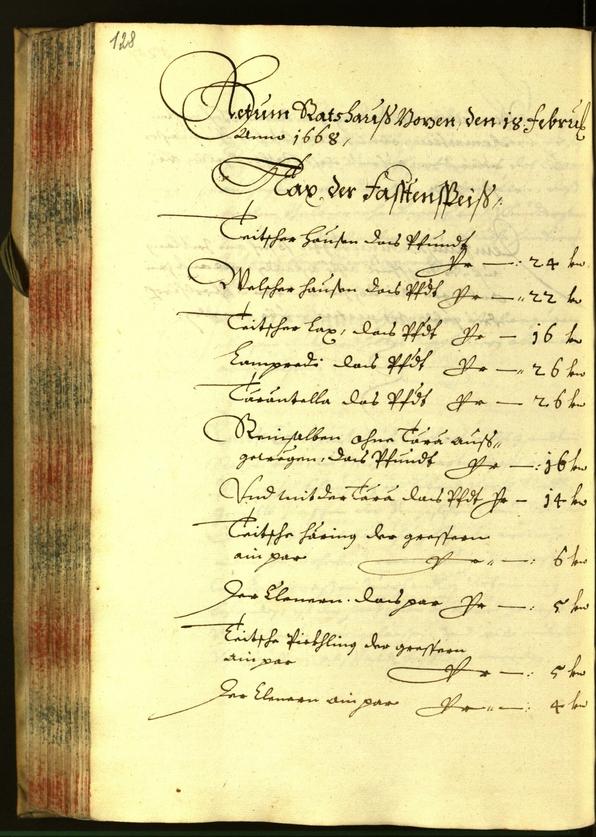 128
Actum Ratshauß Bozen, den 18. Februar
Anno 1668.
Tax der Fasttenspeiß.
Teitscher Hausen das Pfundt
Pr — 24 kr
Welscher hausen das Pfdt Pr — 22 kr
Teitscher Lax, das Pfdt Pr — 16 kr
Lampredi das Pfdt Pr — 26 kr
Tarantella das Pfdt Pr — 26 kr
Reinsalben ohne Tara auß-
gewogen, das Pfundt Pr —: 16 kr
Und mit der Tara das Pfdt Pr — 14 kr
Teitsche häring der gressern
ain par Pr —: 6 kr
der klenern das par Pr —: 5 kr
Teitsche Pickhling der gressern
ain par Pr —: 5 kr
der klenern ain par Pr —: 4 kr